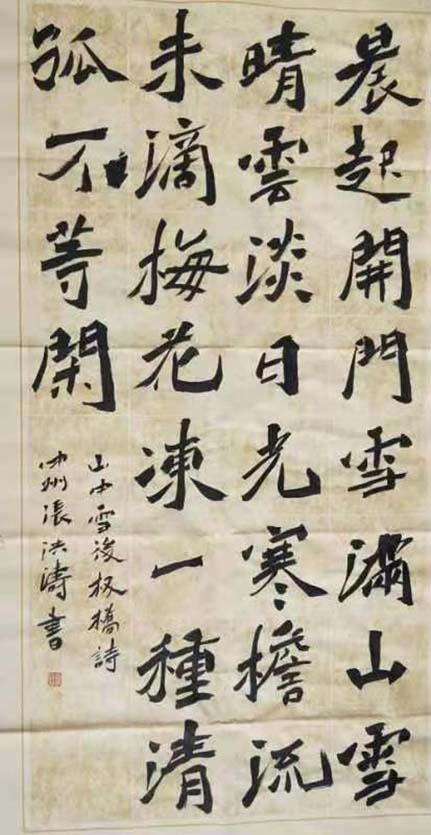 晨起開門雪滿山雪
晴雲淡日光寒檐流
未滴梅花凍一種清
孤不等閑
山中雪後板橋詩
中州張洪濤書